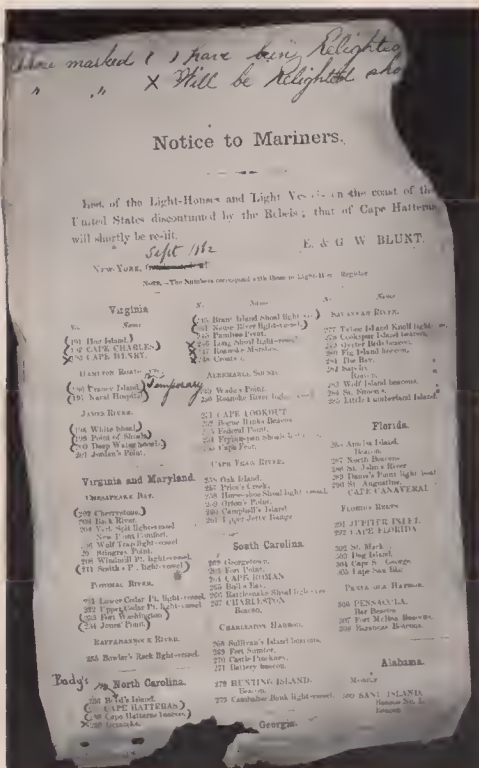 Those marked ( ) have being Relighted
" " X Will be Relighted sho
Notice to Mariners.
List of the Light-Houses and Light Vessels on the coast of the
United States discontinued by the Rebels; that of Cape Hatteras
will shortly be re-lit.
Sept 1862
E. & G W BLUNT.
NEW-YORK,
NOTE.—The Numbers correspond with those in Light-House Register
Virginia
No. Name
(191 Hog Island.)
(192 CAPE CHARLES)
CAPE HENRY.
HAMPTON ROADS
Temporary
(197 Naval Hospital)
JAMES RIVER.
(198 White Shoal)
(199 Point of Shoals)
(200 Deep Water Shoal.)
201 Jordan's Point.
Virginia and Maryland.
CHESAPEAKE BAY.
(202 Cherrystone.)
203 Back River.
204 York Spit light-vessel
New Point Comfort.
Wolf Trap light-vessel
Stingray Point.
208 Windmill Pt. light-vessel.
(211 Smith's Pt. light-vessel)
POTOMAC RIVER.
Lower Cedar Pt. light-vessel
232 Upper Cedar Pt. light-vessel.
(233 Fort Washington)
(234 Jones' Point.)
RAPPAHANNOCK RIVER.
235 Bowler's Rock light-vessel.
Body's
North Carolina.
Island.
CAPE HATTERAS)
Cape Hatteras beacon)
Ocracoke.
No. Name
Brant Island Shoal light
Neuse River light-vessel.)
245 Pamlico Point.
246 Long Shoal light-vessel
247 Roanoke Marshes.
248 Croatan
ALBEMARLE SOUND.
Wade's Point.
250 Roanoke River light vessel
251 CAPE LOOKOUT
252 Bogue Banks Beacon
Federal Point.
Fryingpan Shoals
Cape Fear.
CAPE FEAR RIVER.
Oak Island.
257 Price's Creek.
258 Horse-shoe Shoal light-vessel.
259 Orton's Point.
260 Campbell's Island
261 Upper Jetty Range
South Carolina.
262 Georgetown.
263 Fort Point.
264 CAPE ROMAN
265 Bull's Bay.
266 Rattlesnake Shoal light-vessel
267 CHARLESTON
Beacon.
CHARLESTON HARBOR.
268 Sullivan's Island beacons.
269 Fort Sumter.
270 Castle Pinckney.
271 Battery beacon.
HUNTING ISLAND.
Beacon.
Combahee Bank light-vessel.
Georgia.
No. Name
SAVANNAH RIVER.
277 Tybee Island Knoll light-
Cockspur Island beacon.
Oyster Beds beacon.
280 Fig Island beacon.
281 The Bay.
Sapelo
Beacon.
283 Wolf Island beacons.
284 St. Simon's.
285 Little Cumberland Island
Florida.
Amelia Island.
Beacon.
287 North Beacon.
288 St. John's River
289 Dame's Point light boat
290 St. Augustine.
CAPE CANAVERAL
FLORIDA REEFS
291 JUPITER INLET.
292 CAPE FLORIDA
302 St. Mark
303 Dog Island.
304 Cape St. George.
305 Cape San Blas
PENSACOLA HARBOR.
306 PENSACOLA.
Bar Beacon
307 Fort McRee Beacons.
308 Barancas Beacons.
Alabama.
SAND ISLAND
Beacon No. 1.
Beacon